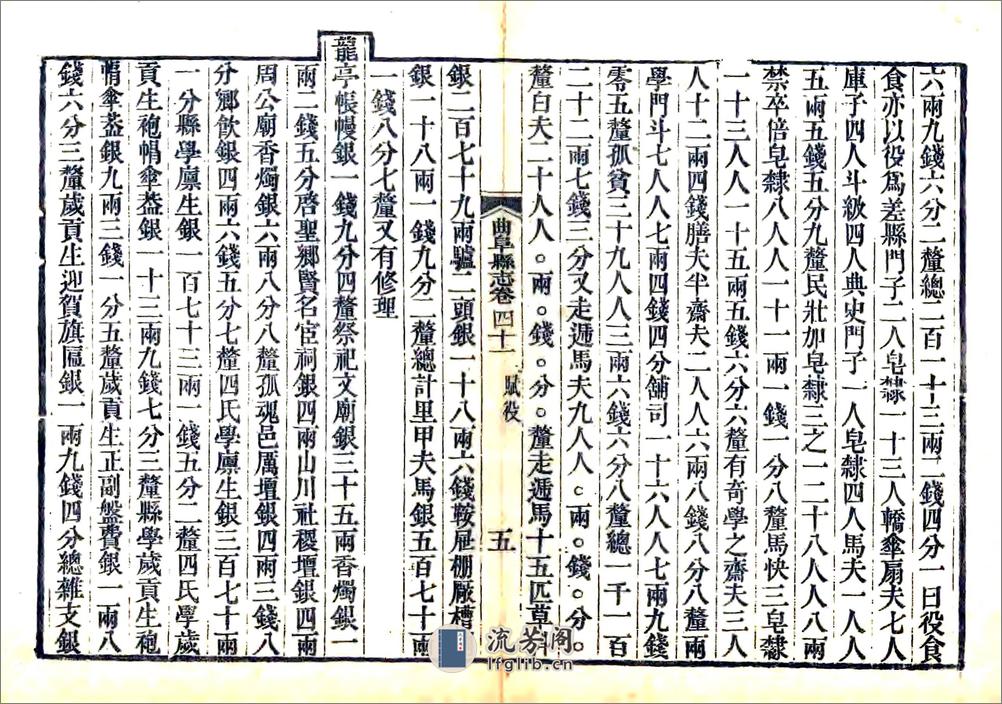 六兩九錢六分二釐總二百一十三兩二錢四分一曰役食
食亦以役爲差縣門子二人皂隸一十三人轎傘扇夫七人
庫子四人斗級四人典史門子一人皂隸四人馬夫一人人
五兩五錢五分九釐民壯加皂隸三之一二十八人人八兩
禁卒倍皂隸八人人一十一兩一錢一分八釐馬快三皂隸
一十三人人一十五兩五錢六分六釐有奇學之齋夫三人
人十二兩四錢膳夫半齋夫二人人六兩八錢八分八釐兩
學門斗七人人七兩四錢四分舖司一十六人人七兩九錢
零五釐孤貧三十九人人三兩六錢六分八釐總一千一百
二十二兩七錢三分又走遞馬夫九人人○兩○錢○分○
釐白夫二十人人○兩○錢○分○釐走遞馬十五匹草料
銀二百七十九兩驢二頭銀一十八兩六錢鞍屉棚厰槽
銀一十八兩一錢九分二釐總計里甲夫馬銀五百七十兩
一錢八分七釐又有修理
龍亭帳幔銀一錢九分四釐祭祀文廟銀三十五兩香燭銀一
兩二錢五分啓聖鄉賢名宦祠銀四兩山川社稷壇銀四兩
周公廟香燭銀六兩八分八釐孤魂邑厲壇銀四兩三錢八
分鄉飮銀四兩六錢五分七釐四氏學廪生銀三百七十兩
一分縣學廪生銀一百七十三兩一錢五分二釐四氏學歲
貢生袍帽傘葢銀一十三兩九錢七分三釐縣學歲貢生袍
帽傘葢銀九兩三錢一分五釐歲貢生正副盤費銀一兩八
錢六分三釐歲貢生迎賀旗匾銀一兩九錢四分總雜支銀
曲阜縣志卷四十一
賦役
五
流芳阁
lfglib.cn